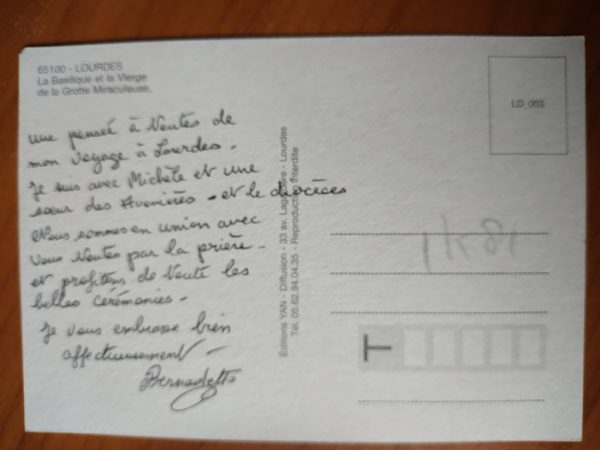 65100 - LOURDES
La Basilique et la Vierge
de la Grotte Miraculeuse.
une pensée à Toutes de
mon voyage à Lourdes.
Je suis avec Michèle et une
sœur des Avenières - et le diocèses
Nous sommes en union avec
vous Toutes par la prière.
et profitons de Toute les
belles cérémonies.
Je vous embrasse bien
affectueusement -
Bernadette
Editions YAN - Diffusion - 33 av. - Lourdes
Tél. 05.62.94.04.35 - Reproduction interdite
LD_003
T